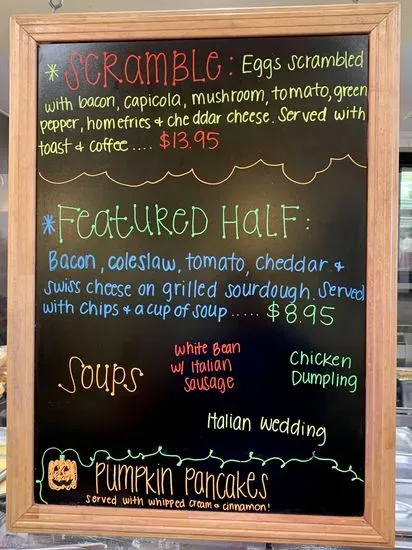 * SCRAMBLE: Eggs scrambled
with bacon, capicola, mushroom, tomato, green
pepper, homefries + cheddar cheese. Served with
toast + coffee .... $13.95
* FEATURED HALF:
Bacon, coleslaw, tomato, cheddar +
swiss cheese on grilled sourdough. Served
with chips + a cup of soup ..... $8.95
Soups
White Bean
w/ Italian
Sausage
Chicken
Dumpling
Italian Wedding
PUMPKIN PANCAKES
served with whipped cream & cinnamon!